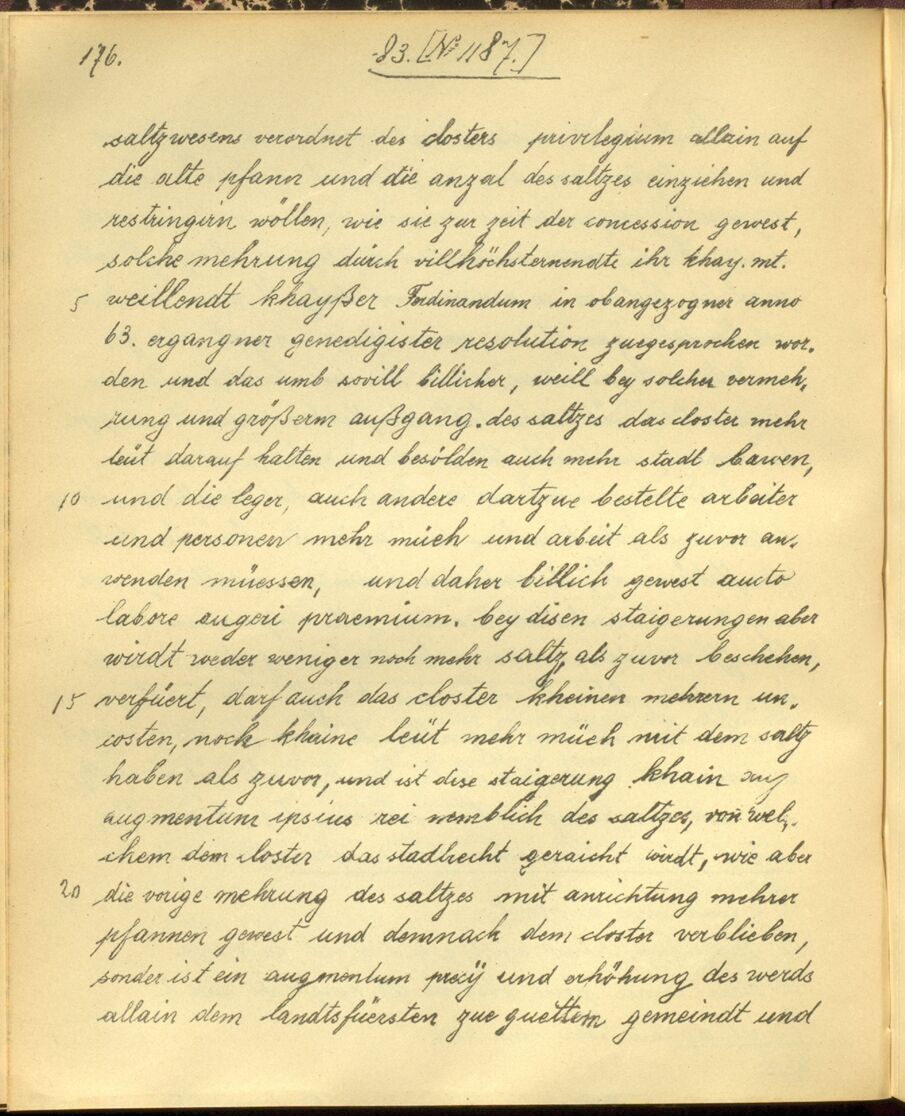 176. 83. [No 1187.]
saltzwesens verordnet des closters privilegium allain auf
die alte pfann und die anzal des saltzes einziehen und
restringirn wöllen, wie sie zur zeit der concession gewest,
solche mehrung dürch villhöchsternendte ihr khay. mt.
5 weillendt khayßer Ferdinandum in obangezogner anno
63. ergangner genedigister resolution zuegesprochen wor-
den und das umb sovill billicher, weill bey solcher vermeh-
rung und größerm außgang des saltzes das closter mehr
leüt darauf halten und besölden auch mehr stadl bawen,
10 und die leger, auch andere dartzue bestelte arbeiter
und personen mehr müeh und arbeit als zuvor an-
wenden müessen, und daher billich gewest aucto
labore augeri praemium. bey disen staigerungen aber
wirdt weder weniger noch mehr saltz, als zuvor beschehen,
15 verfüert, darf auch das closter kheinen mehrern un-
costen, noch khaine leüt mehr müeh mit dem saltz
haben als zuvor, und ist dise staigerung khain
augmentum ipsius rei nemblich des saltzes, von wel-
chem dem closter das stadlrecht geraicht wirdt, wie aber
20 die vorige mehrung des saltzes mit anrichtung mehrer
pfannen gewest und demnach dem closter verblieben,
sonder ist ein augmentum precÿ und erhöhung des werds
allain dem landtsfüersten zue guettem gemeindt und